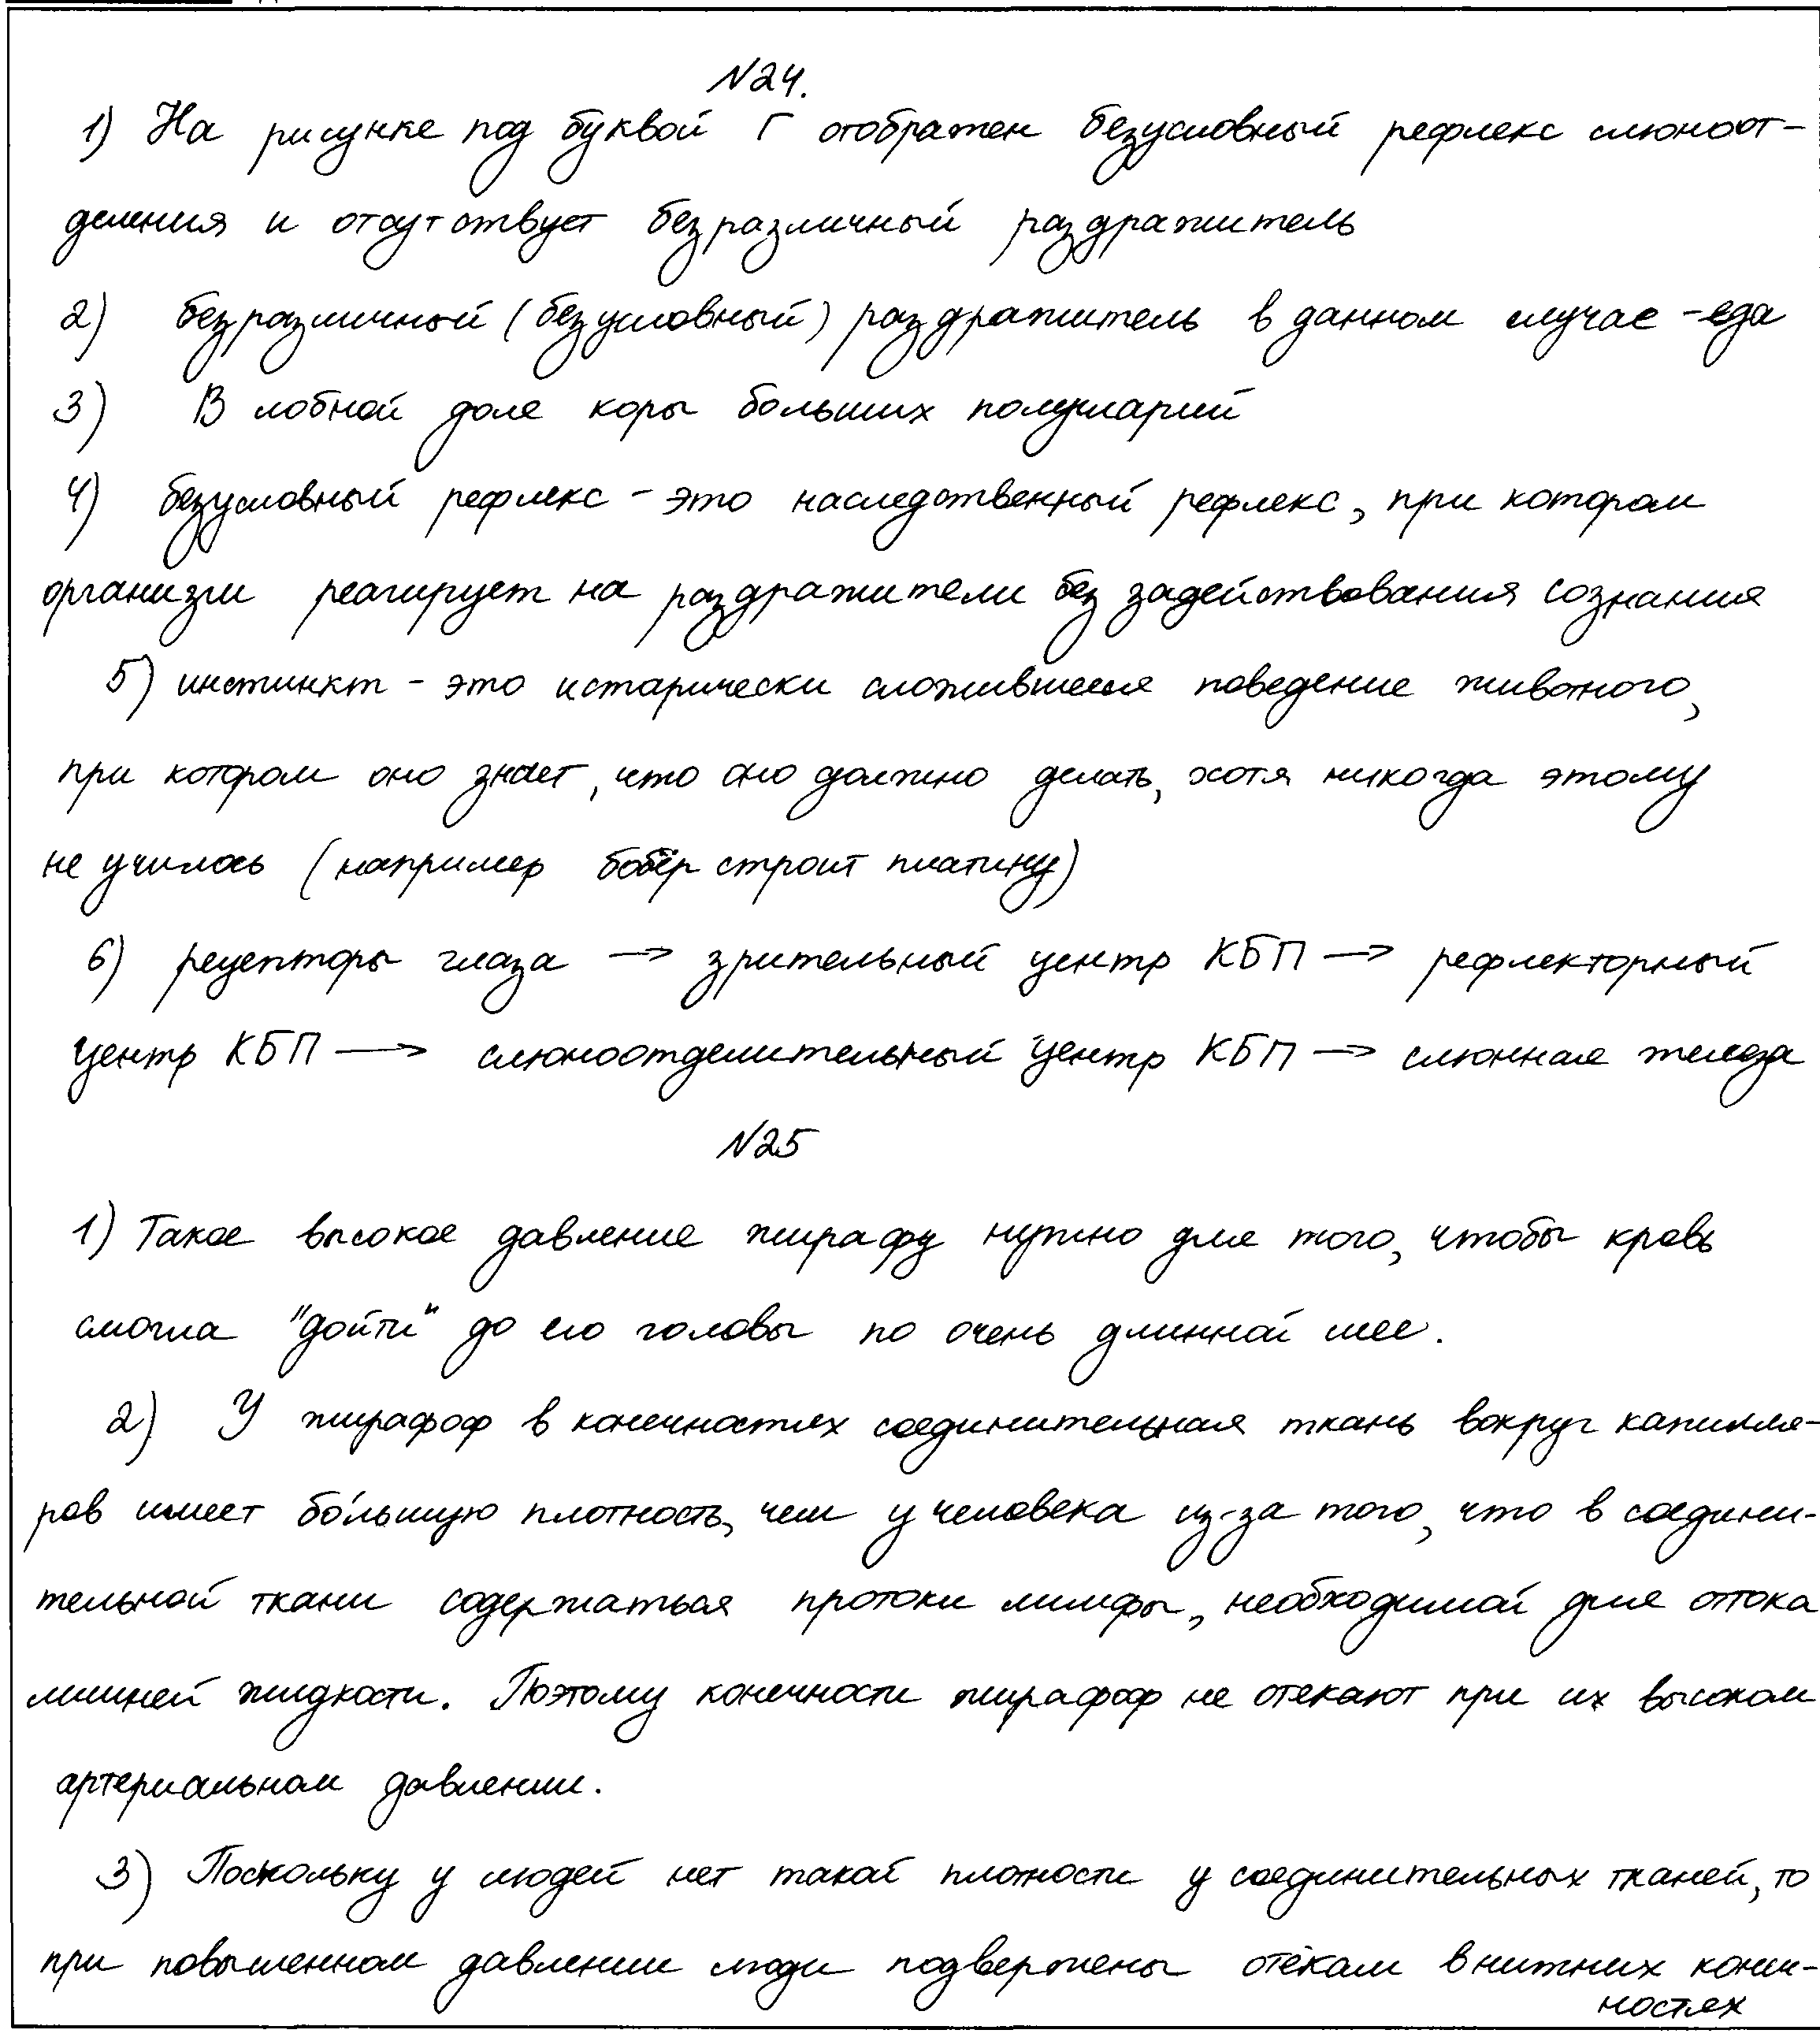 N24.
1) На рисунке под буквой Г отображен безусловный рефлекс слюноот-
деления и отсутствует безразличный раздражитель
2) безразличный (безусловный) раздражитель в данном случае - еда
3) В лобной доле коры больших полушарий
4) безусловный рефлекс - это наследственный рефлекс, при котором
организм реагирует на раздражители без задействования сознания
5) инстинкт - это истарически сложившееся поведение животного,
при котором оно знает, что оно должно делать, хотя никогда этому
не училось (например бобёр строит платину)
6) рецепторы глаза → зрительный центр КБП → рефлекторный
центр КБП → слюноотделительный центр КБП → слюнная железа
N25
1) Такое высокое давление жирафу нужно для того, чтобы кровь
смогла "дойти" до его головы по очень длинной шее.
2) У жирафоф в конечностях соединительная ткань вокруг капилля-
ров имеет бо́льшую плотность, чем у человека из-за того, что в соедини-
тельной ткани содержаться протоки лимфы, необходимой для оттока
лишней жидкости. Поэтому конечности жирафоф не отекают при их высоком
артериальном давлении.
3) Поскольку у людей нет такой плотности у соединительных тканей, то
при повышенном давлении люди подвержены отёкам в нижних конеч-
ностях